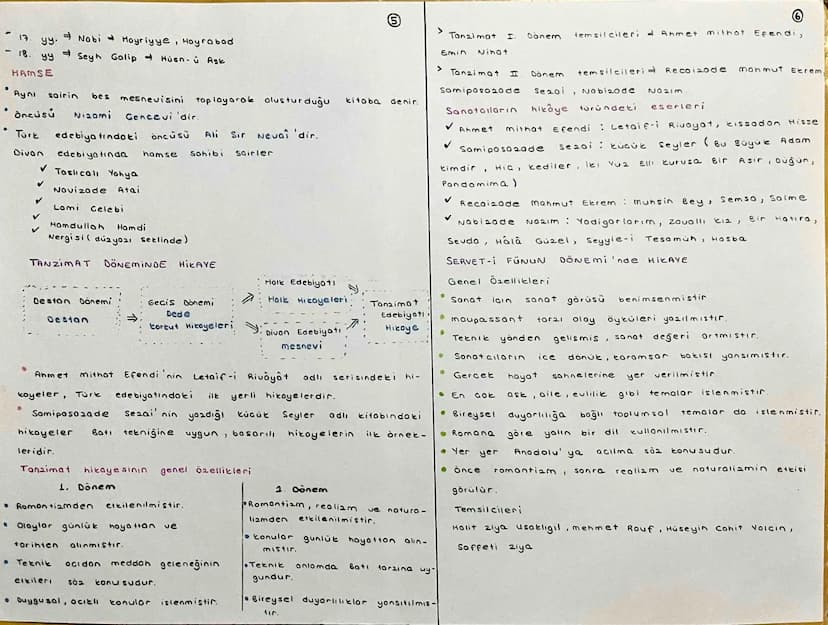 5
- 17. yy. ⇒ Nabi ⇒ Hayriyye, Hayrabad
- 18. yy ⇒ Şeyh Galip ⇒ Hüsn-ü Aşk
HAMSE
• Aynı şairin beş mesnevisini toplayarak oluşturduğu kitaba denir.
• Öncüsü Nizami Gencevi'dir.
• Türk edebiyatındaki öncüsü Ali Şir Nevai'dir.
Divan edebiyatında hamse sahibi şairler
✓ Taşlıcalı Yahya
✓ Nevizade Atai
✓ Lami Çelebi
✓ Hamdullah Hamdi
✓ Nergisi (düzyazı şeklinde)
TANZİMAT DÖNEMİNDE HİKAYE
Destan Dönemi
Destan
⇒
Geçiş Dönemi
Dede
Korkut Hikayeleri
Halk Edebiyatı
Halk Hikayeleri
Divan Edebiyatı
mesnevi
Tanzimat
Edebiyatı
Hikaye
* Ahmet mithat Efendi'nin Letaif-i Rivâyât adlı serisindeki hi-
kayeler, Türk edebiyatındaki ilk yerli hikayelerdir.
* Samipaşazade Sezai'nin yazdığı Küçük Şeyler adlı kitabındaki
hikayeler Batı tekniğine uygun, başarılı hikayelerin ilk örnek-
leridir.
Tanzimat hikayesinin genel özellikleri
1. Dönem
• Romantizmden etkilenilmiştir.
• Olaylar günlük hayattan ve
tarihten alınmıştır.
• Teknik açıdan meddah geleneğinin
etkileri söz konusudur.
• Duygusal, acıklı konular işlenmiştir.
2. Dönem
• Romantizm, realizm ve natura-
lizmden etkilenilmiştir.
• Konular günlük hayattan alın-
mıştır.
• Teknik anlamda Batı tarzına uy-
gundur.
• Bireysel duyarlılıklar yansıtılmış-
tır.
6
> Tanzimat I. Dönem temsilcileri ⇒ Ahmet mithat Efendi,
Emin Nihat
> Tanzimat II Dönem temsilcileri ⇒ Recaizade mahmut Ekrem
Samipaşazade Sezai, Nabizade Nazım.
Sanatçıların hikâye türündeki eserleri
✓ Ahmet mithat Efendi : Letaif-i Rivayat, Kıssadan Hisse
✓ Samipaşazade Sezai : Küçük Şeyler ( Bu Büyük Adam
Kimdir, Hiç, Kediler, İki Yüz Elli Kuruşa Bir Asır, Düğün,
Pandomima )
✓ Recaizade mahmut Ekrem : muhsin Bey, Şemsa, Saime
✓ Nabizade Nazım : Yadigarlarım, Zavallı Kız, Bir Hatıra,
Sevda, Hâlâ Güzel, Seyyie-i Tesamüh, Hasba
SERVET-İ FÜNUN DÖNEMİ'nde HİKAYE
Genel Özellikleri
• Sanat için sanat görüşü benimsenmiştir
• maupassant tarzı olay öyküleri yazılmıştır.
• Teknik yönden gelişmiş, sanat değeri artmıştır.
• Sanatçıların içe dönük, karamsar bakışı yansımıştır.
• Gerçek hayat sahnelerine yer verilmiştir
• En çok aşk, aile, evlilik gibi temalar işlenmiştir.
• Bireysel duyarlılığa bağlı toplumsal temalar da işlenmiştir.
• Romana göre yalın bir dil kullanılmıştır.
• Yer yer Anadolu'ya açılma söz konusudur.
• Önce romantizm, sonra realizm ve naturalizmin etkisi
görülür.
Temsilcileri
Halit Ziya Uşaklıgil, mehmet Rauf, Hüseyin Cahit Yalçın,
Saffeti Ziya